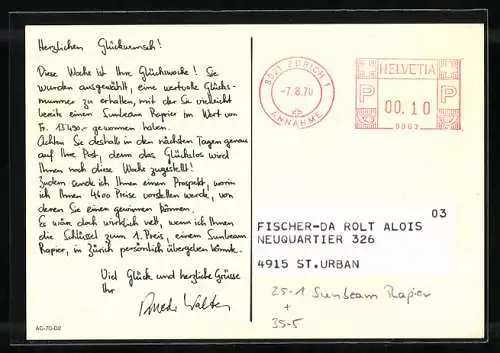 Herzlichen Glückwunsch!
Diese Woche ist Ihre Glückswoche! Sie
wurden ausgewählt, eine wertvolle Glücks-
nummer zu erhalten, mit der Sie vielleicht
bereits einen Sunbeam Rapier im Wert von
Fr. 13'450.- gewonnen haben.
Achten Sie deshalb in den nächsten Tagen genau
auf Ihre Post, denn das Glückslos wird
Ihnen noch diese Woche zugestellt!
Zudem sende ich Ihnen einen Prospekt, worin
ich Ihnen 4600 Preise vorstellen werde, von
denen Sie einen gewinnen können.
Es wäre doch wirklich nett, wenn ich Ihnen
die Schlüssel zum 1. Preis, einem Sunbeam
Rapier, in Zürich persönlich übergeben könnte.
Viel Glück und herzliche Grüsse
Ihr
Walter
AC-70-02
8021 ZÜRICH 1
-7.8.70
ANNAHME
HELVETIA
P 00.10 P
03
FISCHER-DA ROLT ALOIS
NEUQUARTIER 326
4915 ST.URBAN
25-1 Sunbeam Rapier
+
35-5